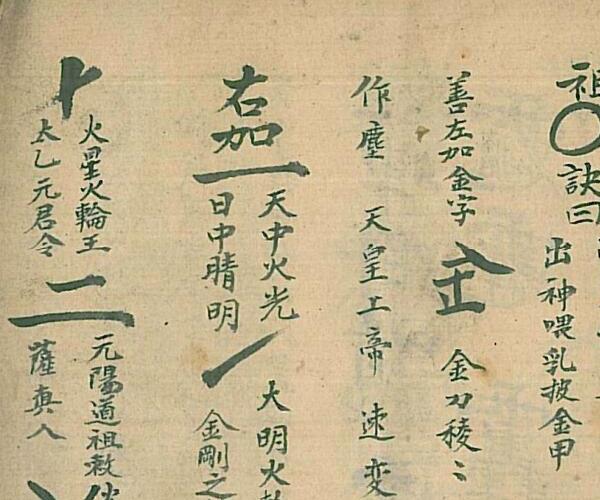 祖
訣曰
出神喂乳披金甲
善左加金字
金刀稜〻
作塵 天皇上帝 速变
右加
天中火光
日中晴明
大明火
金剛之
火星火輪王
太乙元君令
二
元陽道祖敕
薩真人